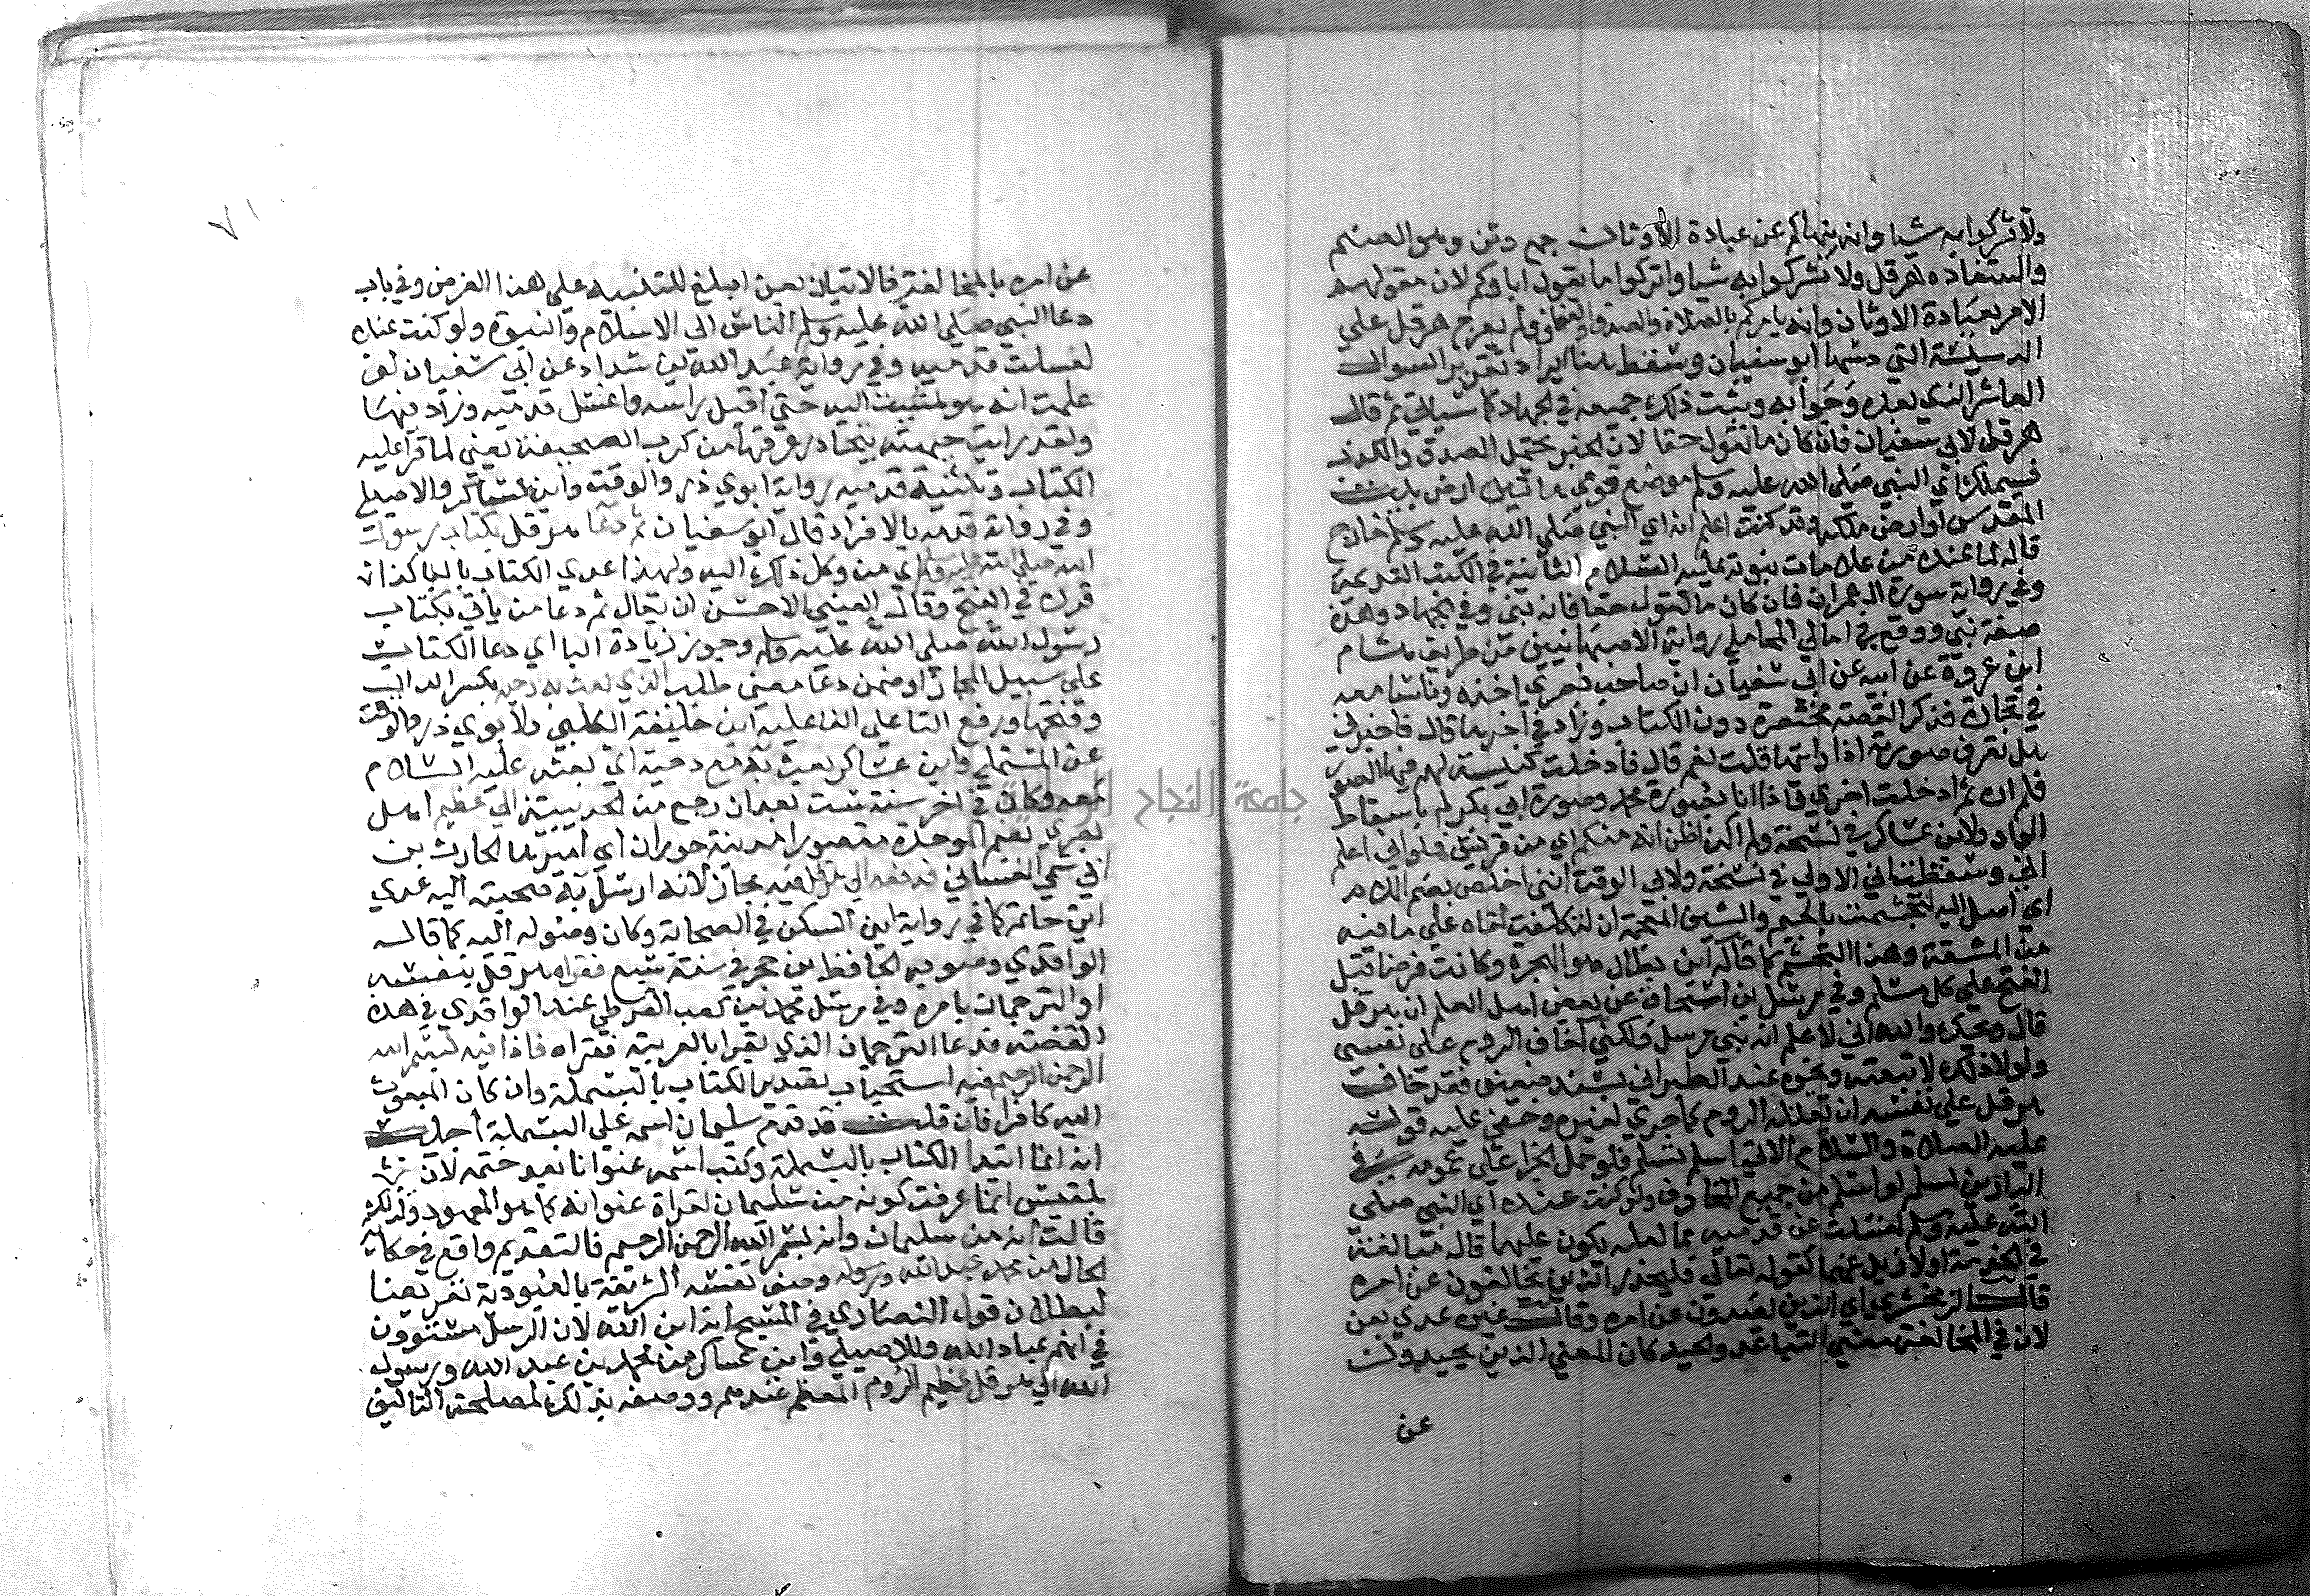 ولا تشركوا به شيا وانه ينهاكم عن عبادة الاوثان جمع وثن وهو الصنم
واستفاده هرقل ولا تشركوا به شيا واتركوا ما يقول اباوكم لان مقولهم
الامر بعبادة الاوثان وانه يامركم بالصلاة والصدق والعفاف ولم يعرج هرقل علي
الدسيسة التي دسها ابو سفيان وسقط هنا ايراد تقرير السوال
العاشر الذي بعده وجوابه وثبت ذلك جميعه في الجهاد كما سياتي ثم قال
هرقل لابي سفيان فان كان ما تقول حقا لان الخبر يحتمل الصدق والكذب
فسيملك اي النبي صلي الله عليه وسلم موضع قدمي هاتين ارض بيت
المقدس او ارض ملكه وقد كنت اعلم انه اي النبي صلي الله عليه وسلم خارج
قاله لما عنده من علامات نبوته عليه السلام الثابتة في الكتب القديمة
وفي رواية سورة ال عمران فان كان ما تقول حقا فانه نبي وفي الجهاد وهذه
صفة نبي ووقع في امالي المحاملي رواية الاصبهانيين من طريق هشام
ابن عروة عن ابيه عن ابي سفيان ان صاحب بصري اخذه وناسا معه
في تجارة فذكر القصة مختصرة دون الكتاب وزاد في اخرها قال فاخبرني
هل تعرف صورته اذا رايتها قلت نعم قال فادخلت كنيسة لهم فيها الصور
فلم اره ثم ادخلت اخري فاذا انا بصورة محمد وصورة ابي بكر لم باسقاط
الواو ولابن عساكر في نسخة ولم اكن اظن انه منكم اي من قريش فلو اني اعلم
اني وسقط اني الاولي في نسخة ولابي الوقت انني اخلص بضم اللام
اي اصل اليه لتجشمت بالجيم والشين المعجمة ان لتكلفت لقاه علي ما فيه
من المشقة وهذا التجشم كما قاله ابن بطال هو الهجرة وكانت فرضا قبل
الفتح علي كل مسلم وفي مرسل ابن اسحاق عن بعض اهل العلم ان هرقل
قال ويحك والله اني لاعلم انه نبي مرسل ولكني اخاف الروم علي نفسي
ولولا ذلك لاتبعته ونحوه عند الطبراني بسند ضعيف فقد خاف
هرقل علي نفسه ان يقتله الروم كما جري لغيره وخفي عليه قوله
عليه الصلاة والسلام الاتي اسلم تسلم فلو حمل الجزا علي عمومه في
الدارين لسلم لو اسلم من جميع المخاوف ولو كنت عنده اي النبي صلي
الله عليه وسلم لغسلت عن قدميه مما لعله يكون عليهما قاله مبالغة
في الخدمة او لازيل عنهما كقوله تعالي فليحذر الذين يخالفون عن امره
قال الزمخشري اي الذين يصدون عن امره وقال غيره عدي بعن
لان في المخالفة معني التباعد والحيد كان المعني الذين يحيدون
عن
٧١
عن امره بالمخالفة فالاتيان بعن ابلغ للتنبيه علي هذا الغرض وفي باب
دعا النبي صلي الله عليه وسلم الناس الي الاسلام والنبوة ولو كنت عنده
لغسلت قدميه وفي رواية عبد الله بن شداد عن ابي سفيان لو
علمت انه هو لمشيت اليه حتي اقبل راسه واغسل قدميه وزاد فيها
ولقد رايت جبهته يتحادر عرقها من كرب الصحيفة يعني لما قرا عليه
الكتاب وتثنية قدميه رواية ابوي ذر والوقت وابن عساكر والاصيلي
وفي رواية قدمه بالافراد قال ابو سفيان ثم دعا هرقل بكتاب رسول
الله صلي الله عليه وسلم اي من وكل ذلك اليه ولهذا عدي الكتاب بالبا كذا
قرره في الفتح وقال العيني الاحسن ان يقال ثم دعا من ياتي بكتاب
رسول الله صلي الله عليه وسلم وجوز زيادة البا اي دعا الكتاب
علي سبيل المجاز او ضمن دعا معني طلب الذي بعث به دحية بكسر الدال
وفتحها ورفع التا علي الفاعلية ابن خليفة الكلبي ولابوي ذر والوقت
عن المستملي وابن عساكر بعث به مع دحية اي بعثه عليه السلام
معه وكان في اخر سنة ست بعد ان رجع من الحديبية الي عظيم اهل
بصري بضم الموحدة مقصورا مدينة حوران اي اميرها الحارث بن
ابي شمر الغساني فدفعه الي هرقل فيه مجاز لانه ارسل به صحبته اليه عدي
ابن حاتم كما في رواية ابن السكن في الصحابة وكان وصوله اليه كما قاله
الواقدي وصوبه الحافظ ابن حجر في سنة سبع فقراه هرقل بنفسه
او الترجمان بامره وفي مرسل محمد بن كعب القرظي عند الواقدي في هذه
القصة فدعا الترجمان الذي يقرا بالعربية فقراه فاذا فيه بسم الله
الرحمن الرحيم فيه استحباب تصدير الكتاب بالبسملة وان كان المبعوث
اليه كافرا فان قلت قد قدم سليمان اسمه علي البسملة اجيب
انه انما ابتدا الكتاب بالبسملة وكتب اسمه عنوانا بعد ختمه لان
بلقيس انما عرفت كونه من سليمان لقراة عنوانه كما هو المعهود ولذلك
قالت انه من سليمان وانه بسم الله الرحمن الرحيم فالتقديم واقع في حكاية
الحال من محمد عبد الله ورسوله وصف نفسه الشريفة بالعبودية تعريضا
لبطلان قول النصاري في المسيح انه ابن الله لان الرسل مستوون
في انهم عباد الله وللاصيلي وابن عساكر من محمد بن عبد الله ورسول
الله الي هرقل عظيم الروم المعظم عندهم ووصفه بذلك لمصلحة التاليف